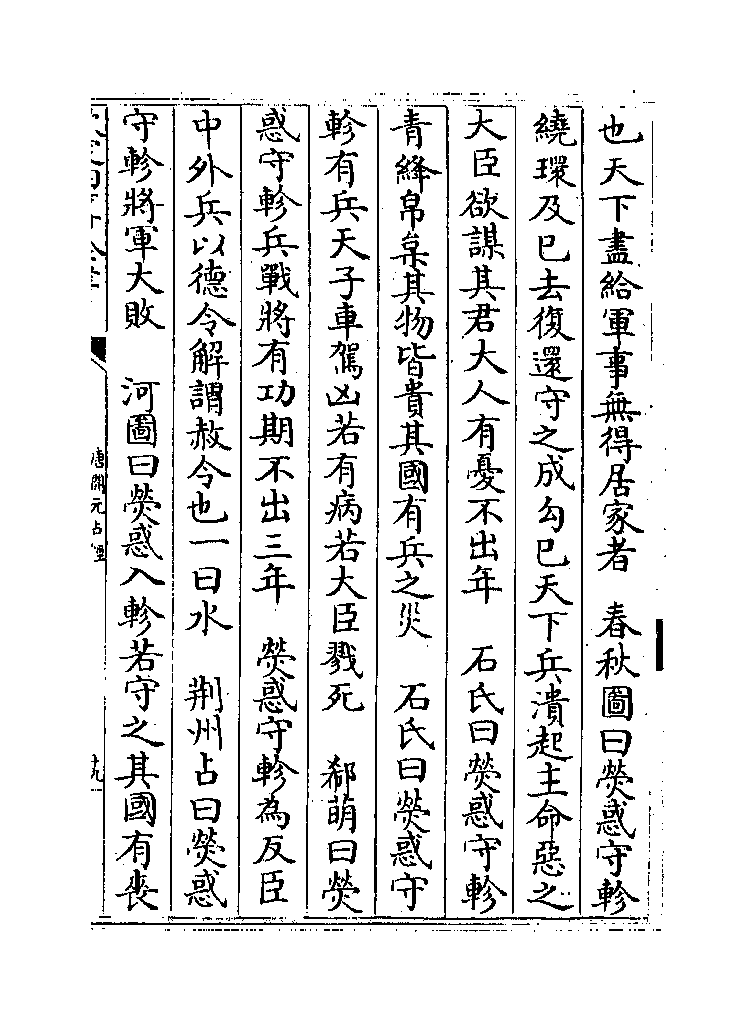 也天下盡給軍事無得居家者　春秋圖曰熒惑守軫
繞環及巳去復還守之成勾巳天下兵潰起主命惡之
大臣欲謀其君大人有憂不出年　石氏曰熒惑守軫
青絳帛枲其物皆貴其國有兵之災　石氏曰熒惑守
軫有兵天子車駕凶若有病若大臣戮死　郗萌曰熒
惑守軫兵戰將有功期不出三年　熒惑守軫為反臣
中外兵以德令解謂赦令也一曰水　荆州占曰熒惑
守軫將軍大敗　河圖曰熒惑入軫若守之其國有喪
唐開元占經
十九